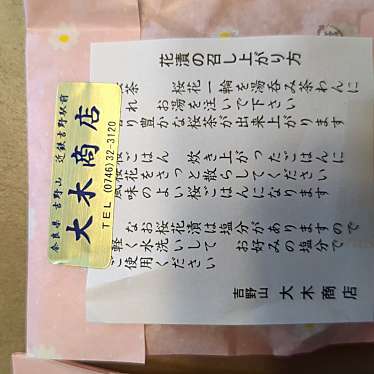 花漬の召し上がり方
茶 桜花一輪を湯呑み茶わんに
れ お湯を注いで下さい
り豊かな桜茶が出来上がります
桜ごはん 炊き上がったごはんに
桜花をさっと散らしてください
風味のよい桜ごはんになります
なお桜花漬は塩分がありますので
軽く水洗いして お好みの塩分で
ご使用ください
吉野山 大木商店
奈良県吉野山 近鉄吉野駅前
大木商店
TEL (0746)32-3120